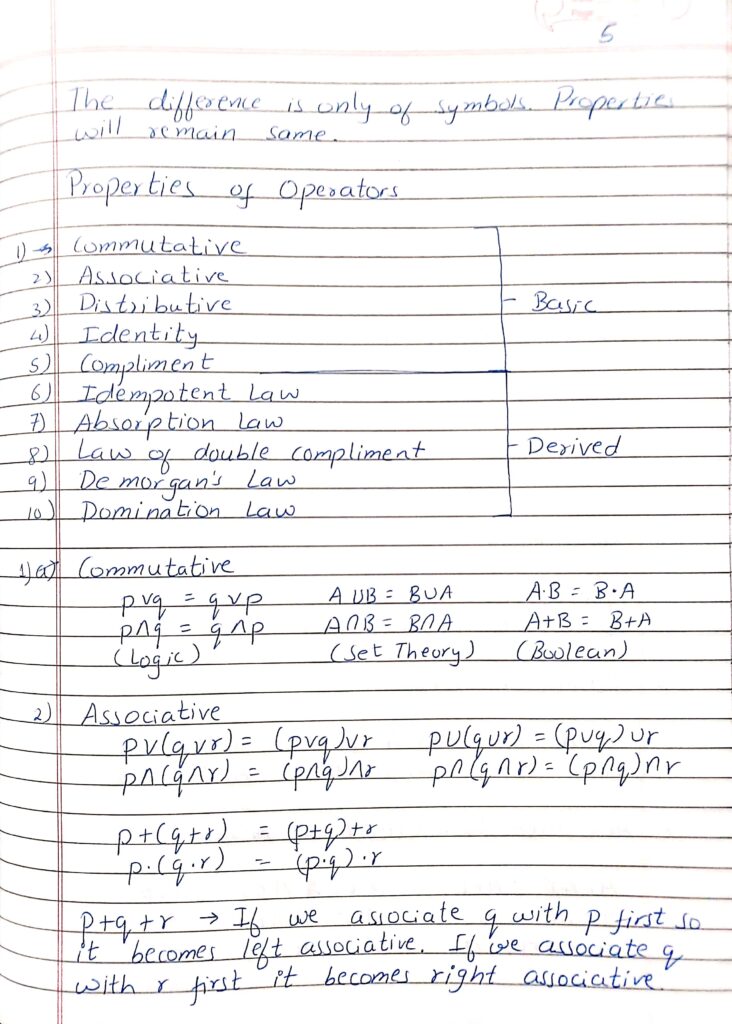 5
The difference is only of symbols. Properties
will remain same.
Properties of Operators
1) → Commutative
2) Associative
3) Distributive
- Basic
4) Identity
5) Compliment
6) Idempotent Law
7) Absorption Law
8) Law of double compliment
- Derived
9) De morgan's Law
10) Domination Law
1)(a) Commutative
p∨q = q∨p A∪B = B∪A A·B = B·A
p∧q = q∧p A∩B = B∩A A+B = B+A
(Logic) (Set Theory) (Boolean)
2) Associative
p∨(q∨r) = (p∨q)∨r p∪(q∪r) = (p∪q)∪r
p∧(q∧r) = (p∧q)∧r p∩(q∩r) = (p∩q)∩r
p+(q+r) = (p+q)+r
p·(q·r) = (p·q)·r
p+q+r → If we associate q with p first so
it becomes left associative. If we associate q
with r first it becomes right associative.